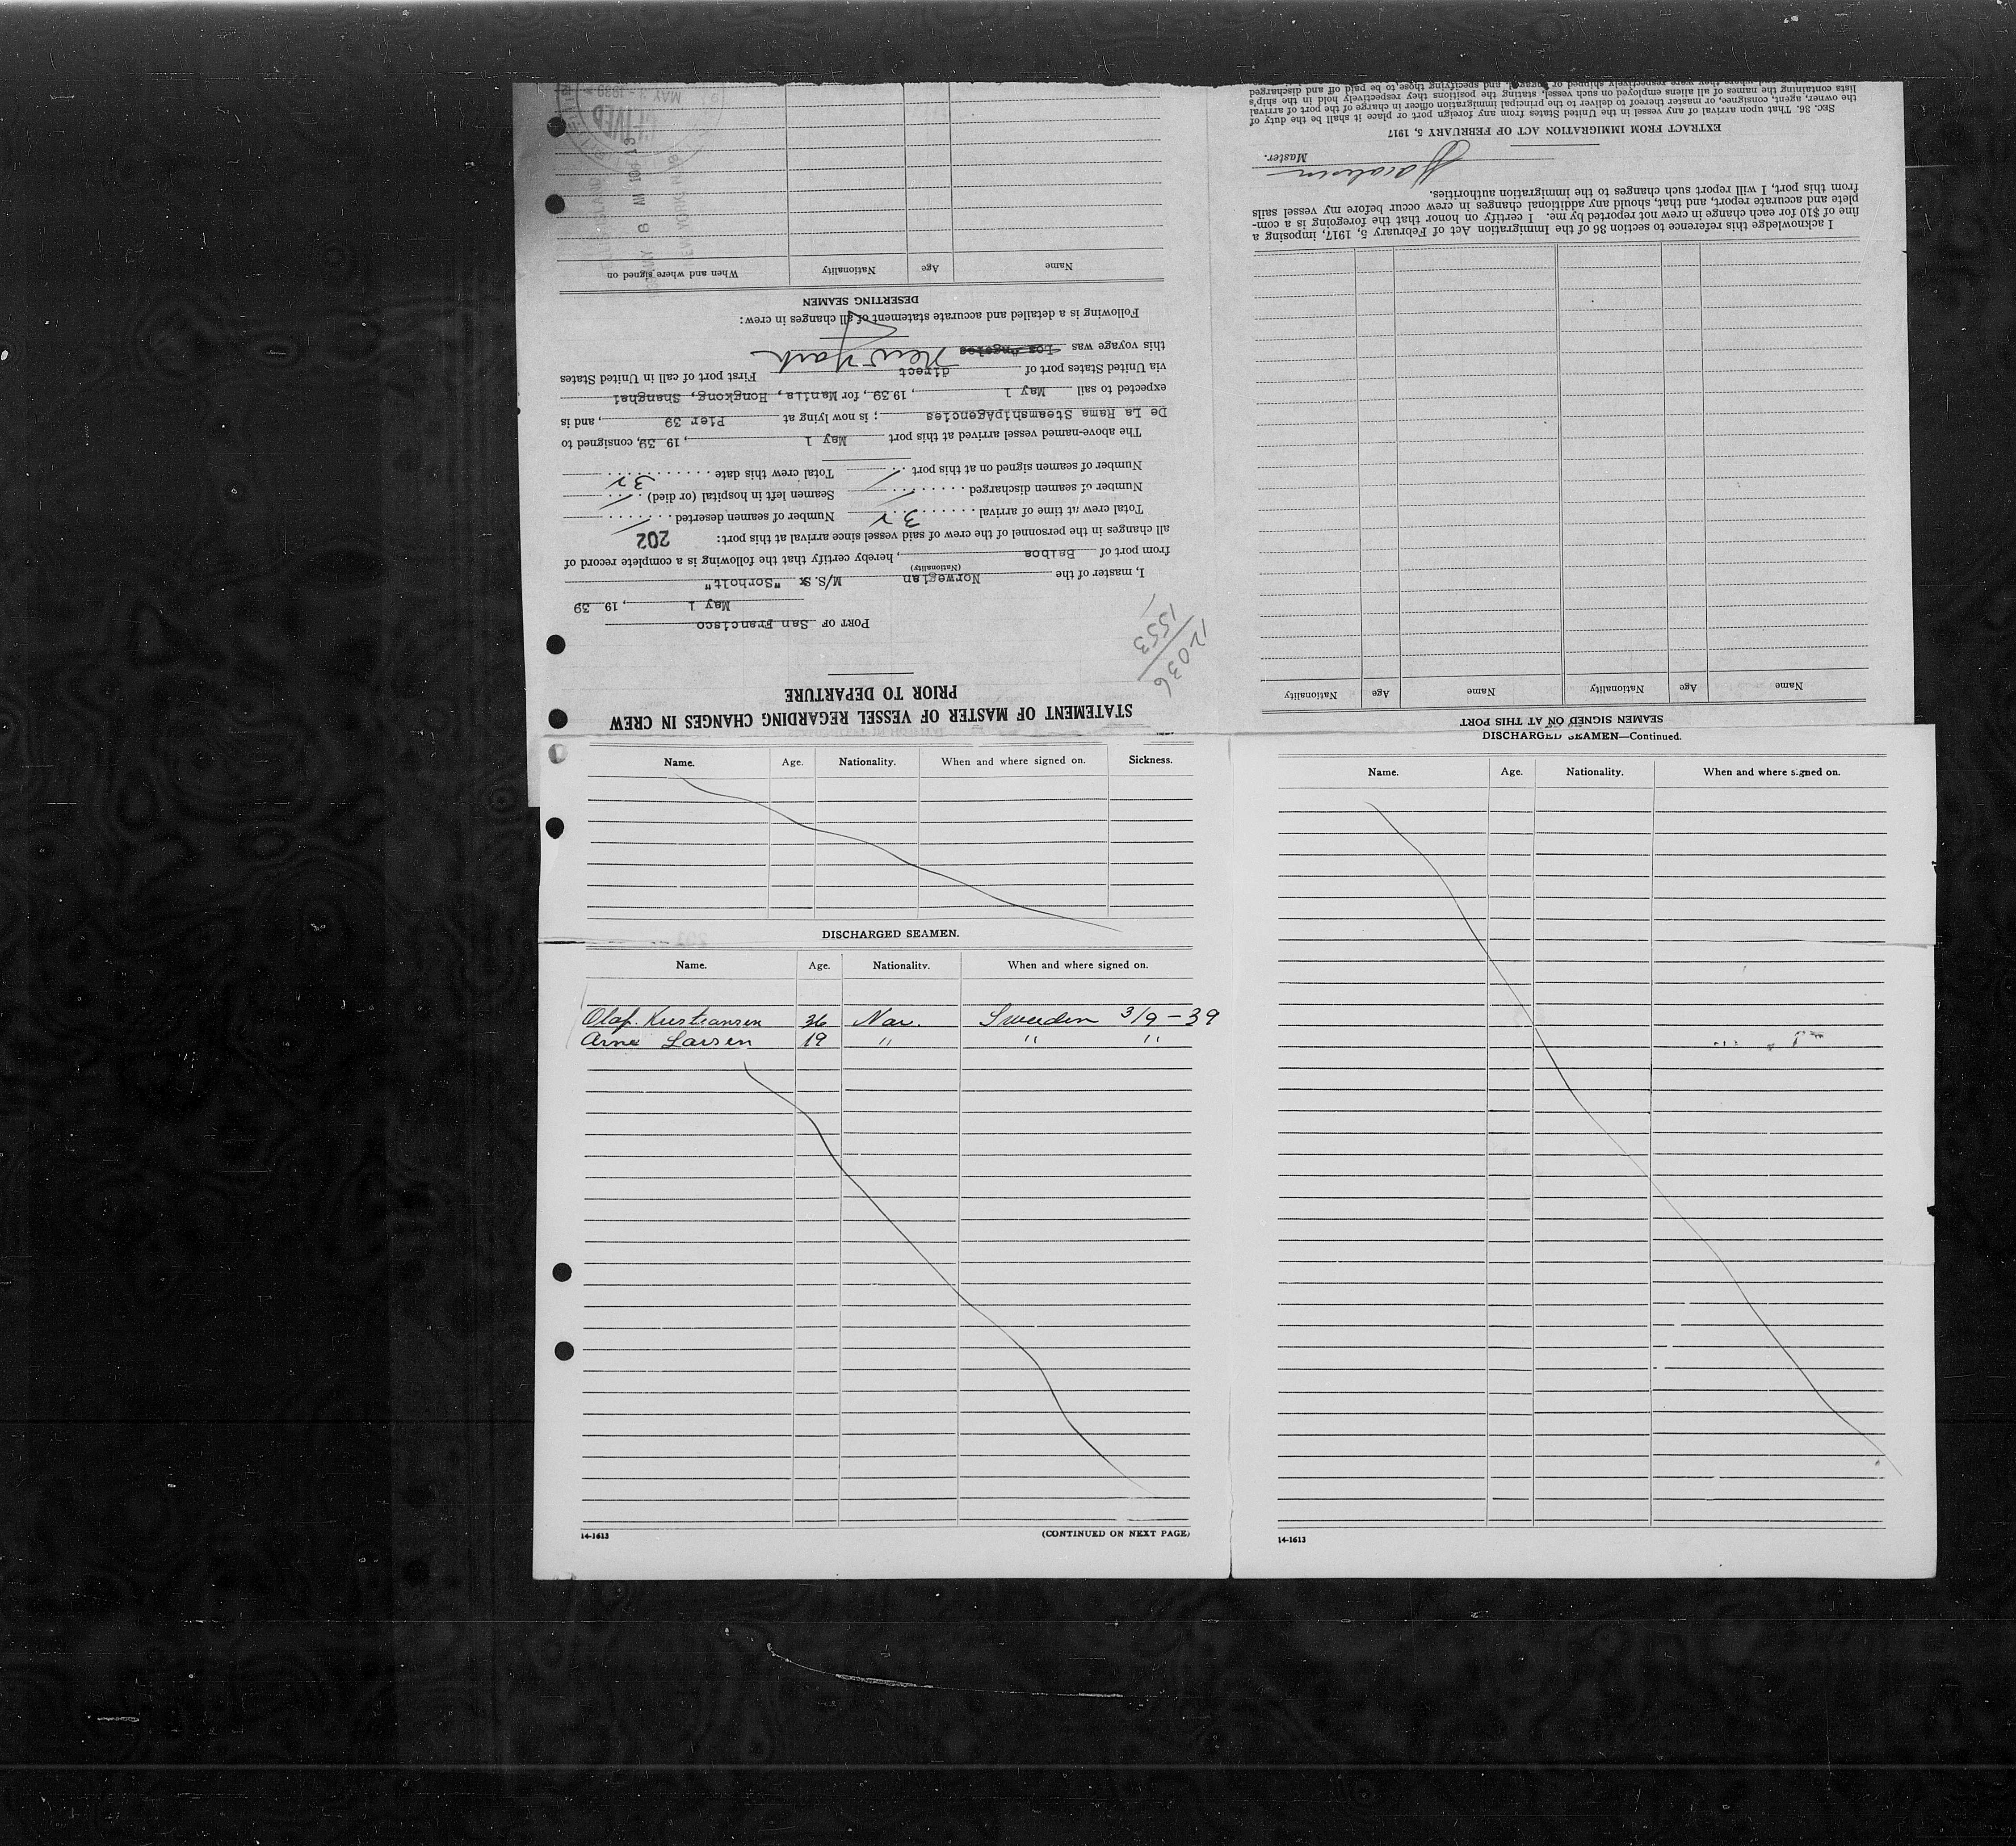 STATEMENT OF MASTER OF VESSEL REGARDING CHANGES IN CREW
PRIOR TO DEPARTURE
12036
1553
PORT OF San Francisco
May 1, 1939
I, master of the Norwegian M/S. "Sorholt"
(Nationality)
from port of Balboa, hereby certify that the following is a complete record of
all changes in the personnel of the crew of said vessel since arrival at this port:
202
Total crew at time of arrival . . . . . . 32 Number of seamen deserted . . . . . .
Number of seamen discharged . . . . . . Seamen left in hospital (or died) . . .
Number of seamen signed on at this port . . Total crew this date . . . . . . . . . . 32
The above-named vessel arrived at this port May 1, 1939, consigned to
De La Rama SteamshipAgencies; is now lying at Pier 39, and is
expected to sail May 1, 1939, for Manila, Hongkong, Shanghai
via United States port of direct First port of call in United States
this voyage was Los Angeles New York
Following is a detailed and accurate statement of all changes in crew:
DESERTING SEAMEN
Name Age Nationality When and where signed on
MAY 8 AM 10 13
MAY - 1939
SEAMEN SIGNED ON AT THIS PORT
Name Age Nationality Name Age Nationality
I acknowledge this reference to section 36 of the Immigration Act of February 5, 1917, imposing a
fine of $10 for each change in crew not reported by me. I certify on honor that the foregoing is a com-
plete and accurate report, and that, should any additional changes in crew occur before my vessel sails
from this port, I will report such changes to the immigration authorities.
Master.
EXTRACT FROM IMMIGRATION ACT OF FEBRUARY 5, 1917
SEC. 36. That upon arrival of any vessel in the United States from any foreign port or place it shall be the duty of
the owner, agent, consignee, or master thereof to deliver to the principal immigration officer in charge of the port of arrival
lists containing the names of all aliens employed on such vessel, stating the positions they respectively hold in the ship's
and where they were respectively shipped or engaged, and specifying those to be paid off and discharged
Name. Age. Nationality. When and where signed on. Sickness.
DISCHARGED SEAMEN.
Name. Age. Nationality. When and where signed on.
Olaf. Kristiansen 36 Nor. Sweeden 3/9-39
Arne Larsen 19 " " "
14-1613 (CONTINUED ON NEXT PAGE)
DISCHARGED SEAMEN—Continued.
Name. Age. Nationality. When and where signed on.
14-1613